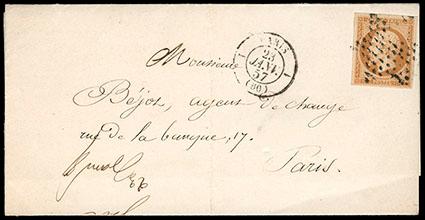 PARIS
23
JANV.
57
(60)
Monsieur
Béjot, agent de change
rue de la banque, 17.
Paris.